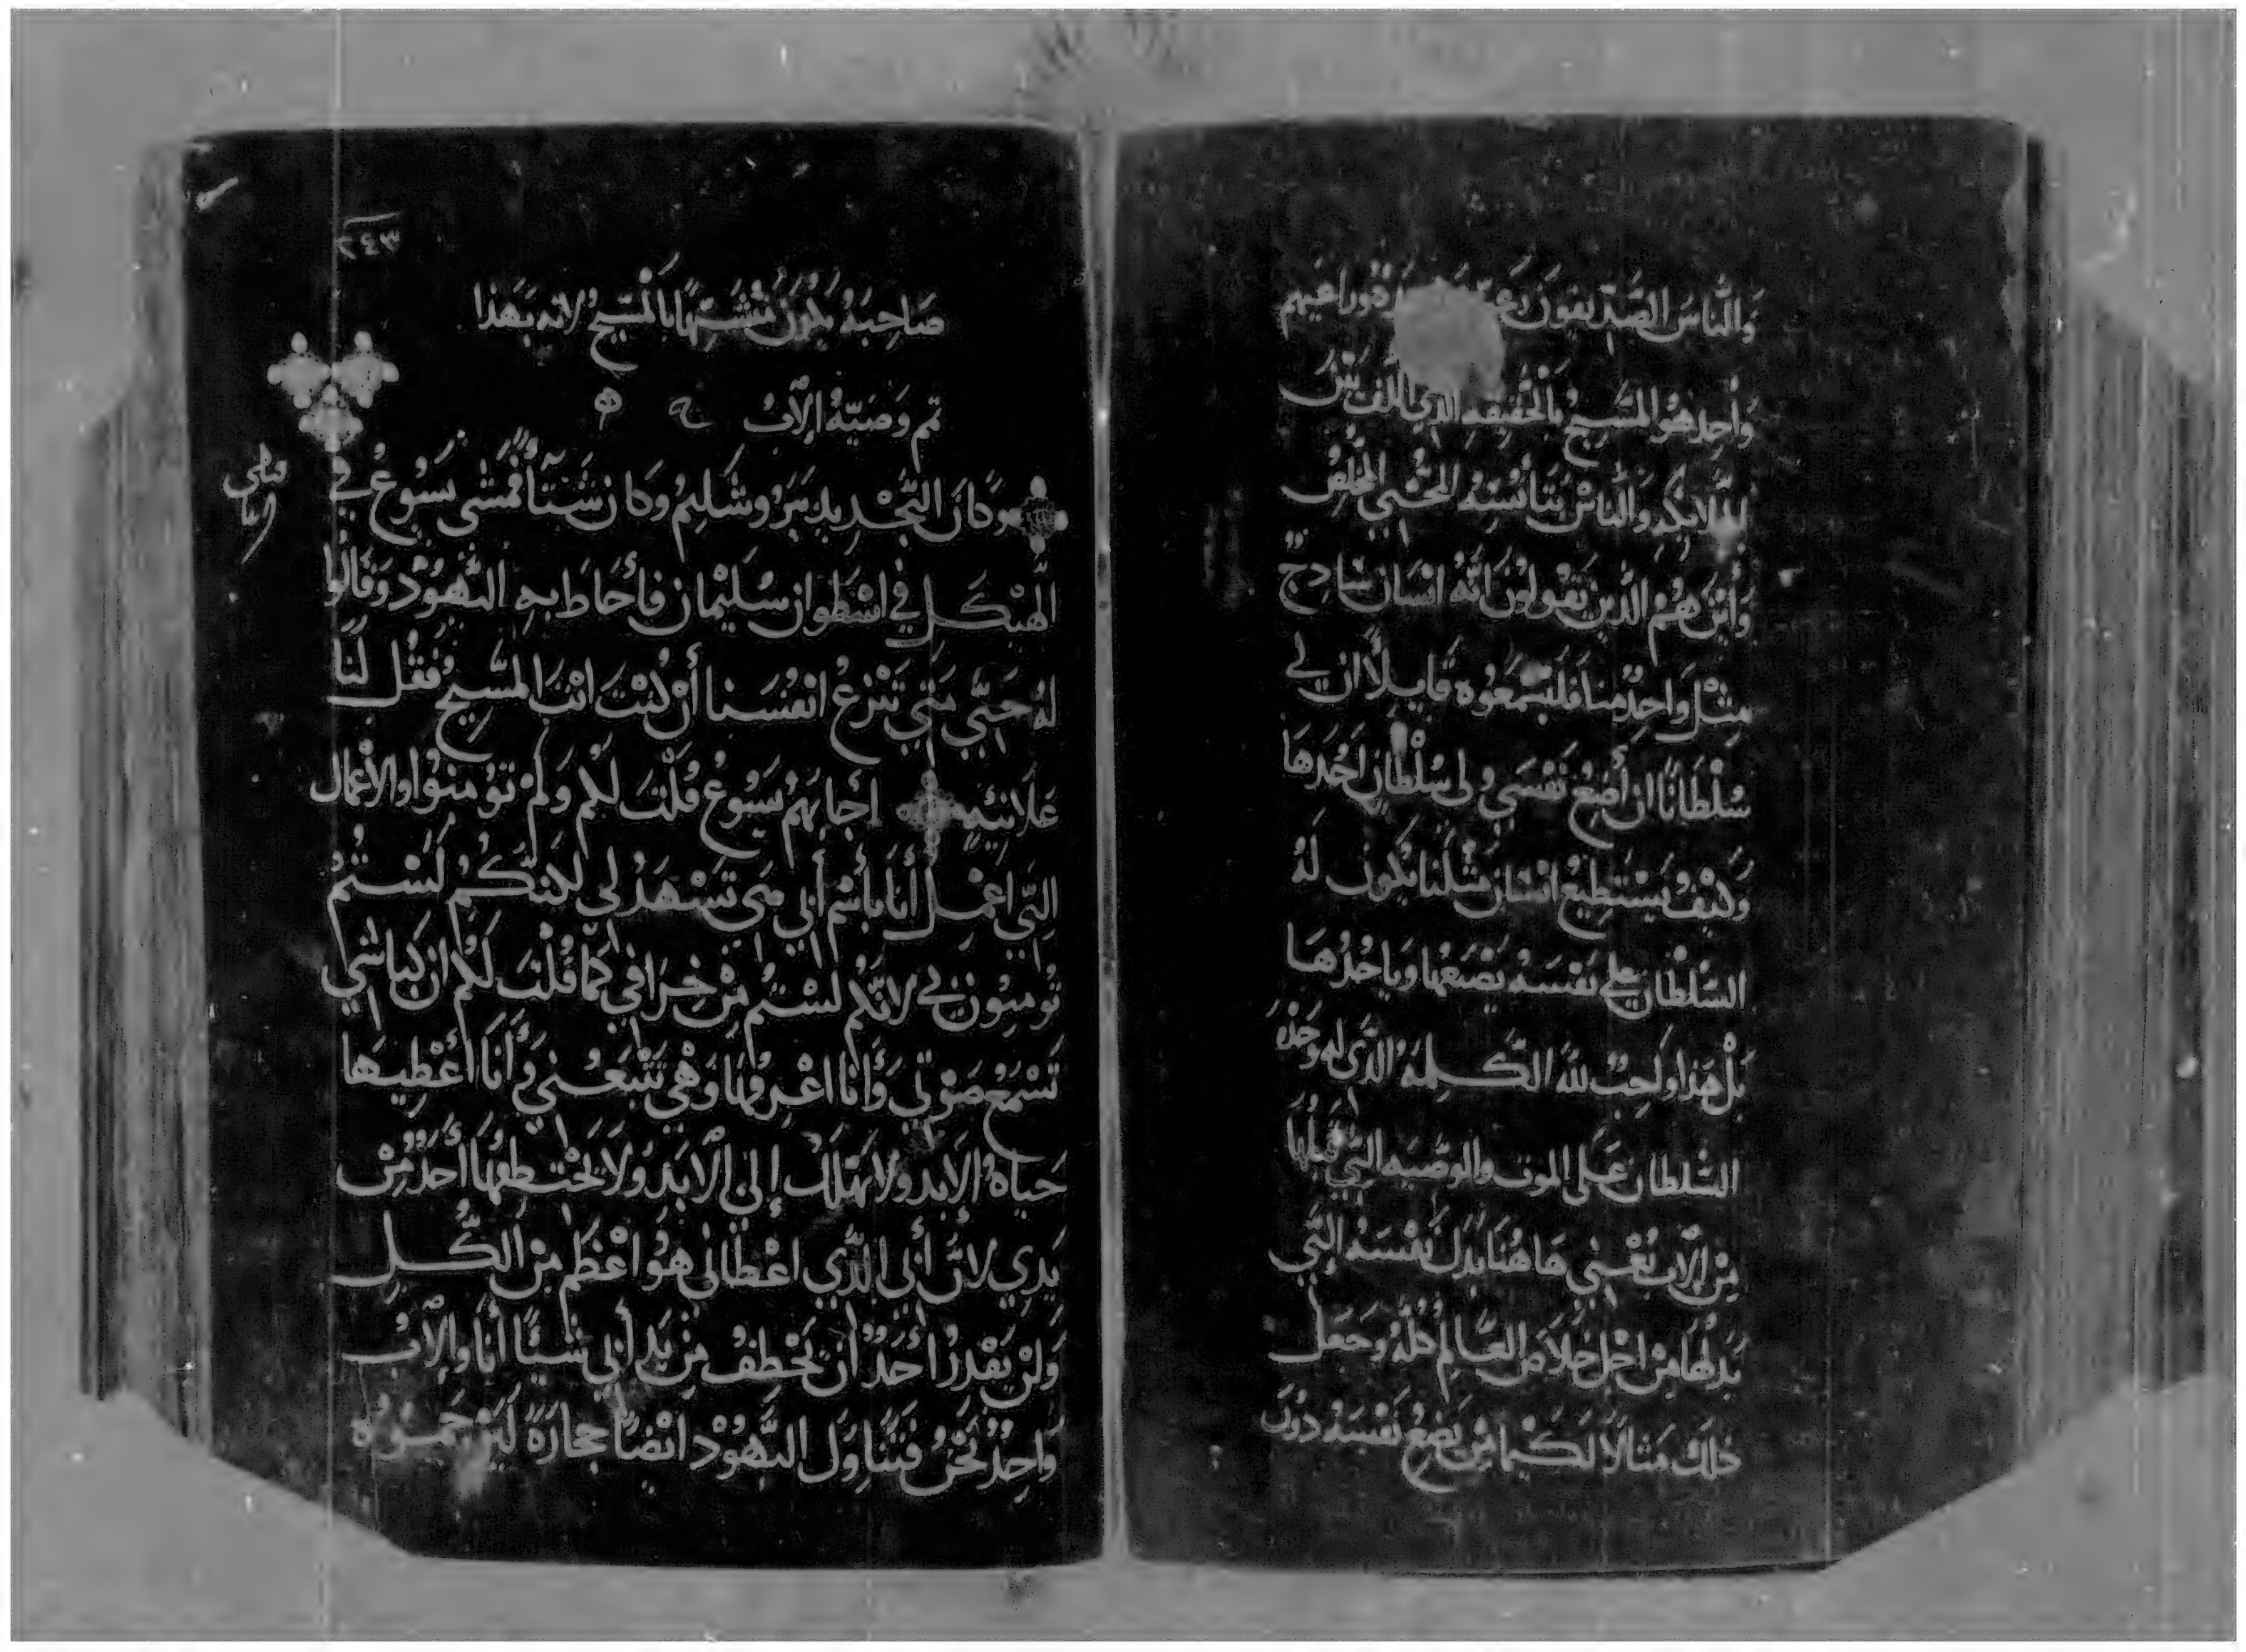 والناس الصديقون رعية وراعيهم
واحد هو المسيح بالحقيقه الذي الف بين
الملايكه والناس بتانسه المحيي المخلص
واين هم الذين يقولون انه انسان سادج
مثل واحد منا فليسمعوه قايلا ان لي
سلطانا ان أضع نفسي ولى سلطان اخدها
وكيف يستطيع انسان مثلنا يكون له
السلطان على نفسه يضعها وياخدها
بل هدا واجب لله الكلمه الدى له وحده
السلطان على الموت والوصيه التي قبلها
من الآب يعني هاهنا بدل نفسه التي
بدلها من اجل خلاص العالم كله وجعل
دلك مثالا لكيما من يضع نفسه دون
٢٤٣
صاحبه يكون متشبها بالمسيح لانه بهذا
تم وصيه الآب
وكان التجديد بيروشليم وكان شتآء فمشى يسوع في
الهيكل في اسطوان سليمان فأحاط به اليهود وقالوا
له حتي متي تنزع انفسنا أن كنت انت المسيح فقل لنا
علانيه اجابهم يسوع قلت لكم ولم تومنوا والأعمال
التي اعمل أنا بأسم أبي هى تشهد لي لاكنكم لستم
تومنون بي لانكم لستم من خرافي كما قلت لكم ان كباشي
تسمع صوتي وأنا اعرفها وهي تتبعني وأنا أعطيها
حياه الابد ولا تهلك إلى الابد ولا يختطفها أحد من
يدي لان أبي الذي اعطانى هو اعظم من الكل
ولن يقدر أحد أن يخطف من يد أبي شيئا أنا والآب
واحد نحن فتناول اليهود ايضا حجارة ليرجموه